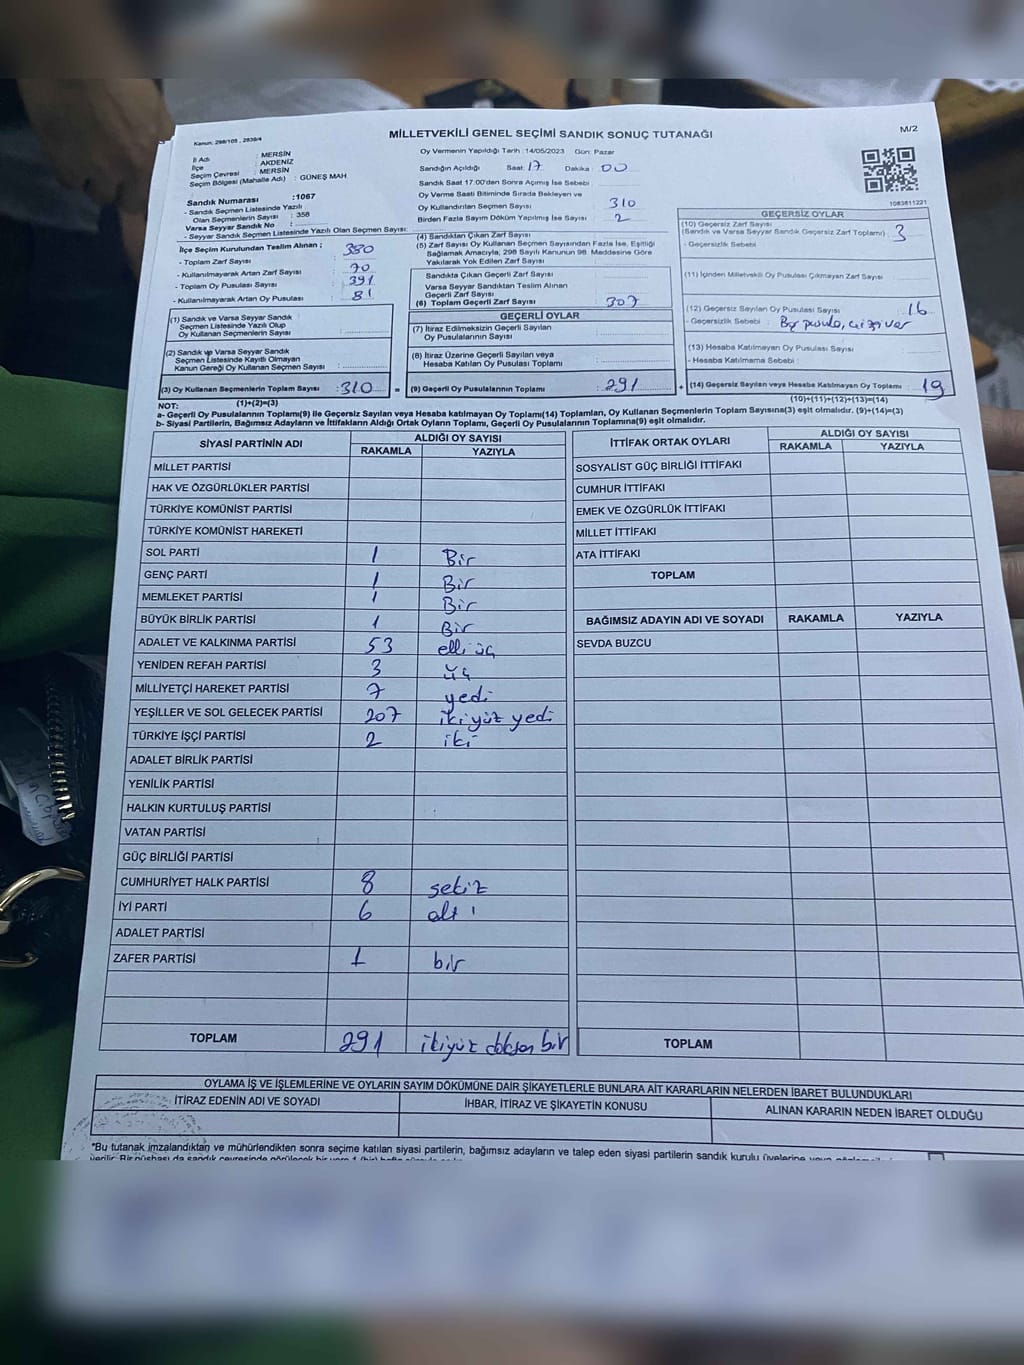 Kanun: 298/105 , 2839/4
MİLLETVEKİLİ GENEL SEÇİMİ SANDIK SONUÇ TUTANAĞI
M/2
İl Adı : MERSİN
İlçe : AKDENİZ
Seçim Çevresi : MERSİN
Seçim Bölgesi (Mahalle Adı) : GÜNEŞ MAH
Sandık Numarası :1067
- Sandık Seçmen Listesinde Yazılı
Olan Seçmenlerin Sayısı : 358
Varsa Seyyar Sandık No :
- Seyyar Sandık Seçmen Listesinde Yazılı Olan Seçmen Sayısı:
İlçe Seçim Kurulundan Teslim Alınan ;
- Toplam Zarf Sayısı : 380
- Kullanılmayarak Artan Zarf Sayısı : 70
- Toplam Oy Pusulası Sayısı : 391
- Kullanılmayarak Artan Oy Pusulası : 81
(1) Sandık ve Varsa Seyyar Sandık
Seçmen Listesinde Yazılı Olup
Oy Kullanan Seçmenlerin Sayısı :
(2) Sandık ve Varsa Seyyar Sandık
Seçmen Listesinde Kayıtlı Olmayan
Kanun Gereği Oy Kullanan Seçmen Sayısı :
(3) Oy Kullanan Seçmenlerin Toplam Sayısı : 310 =
(1)+(2)=(3)
Oy Vermenin Yapıldığı Tarih :14/05/2023 Gün: Pazar
Sandığın Açıldığı Saat: 17 Dakika : 00
Sandık Saat 17:00'den Sonra Açılmış İse Sebebi :
Oy Verme Saati Bitiminde Sırada Bekleyen ve
Oy Kullandırılan Seçmen Sayısı :
Birden Fazla Sayım Döküm Yapılmış İse Sayısı :
310
2
(4) Sandıktan Çıkan Zarf Sayısı
(5) Zarf Sayısı Oy Kullanan Seçmen Sayısından Fazla İse, Eşitliği
Sağlamak Amacıyla, 298 Sayılı Kanunun 98. Maddesine Göre
Yakılarak Yok Edilen Zarf Sayısı
Sandıkta Çıkan Geçerli Zarf Sayısı :
Varsa Seyyar Sandıktan Teslim Alınan
Geçerli Zarf Sayısı :
(6) Toplam Geçerli Zarf Sayısı : 307
GEÇERLİ OYLAR
(7) İtiraz Edilmeksizin Geçerli Sayılan
Oy Pusulalarının Sayısı :
(8) İtiraz Üzerine Geçerli Sayılan veya
Hesaba Katılan Oy Pusulası Toplamı :
(9) Geçerli Oy Pusulalarının Toplamı : 291 +
1083811221
GEÇERSİZ OYLAR
(10) Geçersiz Zarf Sayısı
(Sandık ve Varsa Seyyar Sandık Geçersiz Zarf Toplamı) : 3
- Geçersizlik Sebebi :
(11) İçinden Milletvekili Oy Pusulası Çıkmayan Zarf Sayısı :
(12) Geçersiz Sayılan Oy Pusulası Sayısı : 16
- Geçersizlik Sebebi :
(13) Hesaba Katılmayan Oy Pusulası Sayısı :
- Hesaba Katılmama Sebebi :
(14) Geçersiz Sayılan veya Hesaba Katılmayan Oy Toplamı : 19
(10)+(11)+(12)+(13)=(14)
NOT:
a- Geçerli Oy Pusulalarının Toplamı(9) ile Geçersiz Sayılan veya Hesaba katılmayan Oy Toplamı(14) Toplamları, Oy Kullanan Seçmenlerin Toplam Sayısına(3) eşit olmalıdır. (9)+(14)=(3)
b- Siyasi Partilerin, Bağımsız Adayların ve İttifakların Aldığı Ortak Oyların Toplamı, Geçerli Oy Pusulalarının Toplamına(9) eşit olmalıdır.
SİYASİ PARTİNİN ADI
ALDIĞI OY SAYISI
RAKAMLA YAZIYLA
MİLLET PARTİSİ
HAK VE ÖZGÜRLÜKLER PARTİSİ
TÜRKİYE KOMÜNİST PARTİSİ
TÜRKİYE KOMÜNİST HAREKETİ
SOL PARTİ 1 Bir
GENÇ PARTİ 1 Bir
MEMLEKET PARTİSİ 1 Bir
BÜYÜK BİRLİK PARTİSİ 1 Bir
ADALET VE KALKINMA PARTİSİ 53 elli üç
YENİDEN REFAH PARTİSİ 3 üç
MİLLİYETÇİ HAREKET PARTİSİ 7 yedi
YEŞİLLER VE SOL GELECEK PARTİSİ 207 ikiyüz yedi
TÜRKİYE İŞÇİ PARTİSİ 2 iki
ADALET BİRLİK PARTİSİ
YENİLİK PARTİSİ
HALKIN KURTULUŞ PARTİSİ
VATAN PARTİSİ
GÜÇ BİRLİĞİ PARTİSİ
CUMHURİYET HALK PARTİSİ 8 sekiz
İYİ PARTİ 6 altı
ADALET PARTİSİ
ZAFER PARTİSİ 1 bir
TOPLAM 291 ikiyüz doksan bir
İTTİFAK ORTAK OYLARI
ALDIĞI OY SAYISI
RAKAMLA YAZIYLA
SOSYALİST GÜÇ BİRLİĞİ İTTİFAKI
CUMHUR İTTİFAKI
EMEK VE ÖZGÜRLÜK İTTİFAKI
MİLLET İTTİFAKI
ATA İTTİFAKI
TOPLAM
BAĞIMSIZ ADAYIN ADI VE SOYADI RAKAMLA YAZIYLA
SEVDA BUZCU
TOPLAM
OYLAMA İŞ VE İŞLEMLERİNE VE OYLARIN SAYIM DÖKÜMÜNE DAİR ŞİKAYETLERLE BUNLARA AİT KARARLARIN NELERDEN İBARET BULUNDUKLARI
İTİRAZ EDENİN ADI VE SOYADI İHBAR, İTİRAZ VE ŞİKAYETİN KONUSU ALINAN KARARIN NEDEN İBARET OLDUĞU
*Bu tutanak imzalandıktan ve mühürlendikten sonra seçime katılan siyasi partilerin, bağımsız adayların ve talep eden siyasi partilerin sandık kurulu üyelerine veya